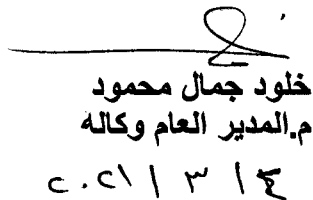 خلود جمال محمود
م.المدير العام وكاله
٢٠٢١ / ٣ / ٤